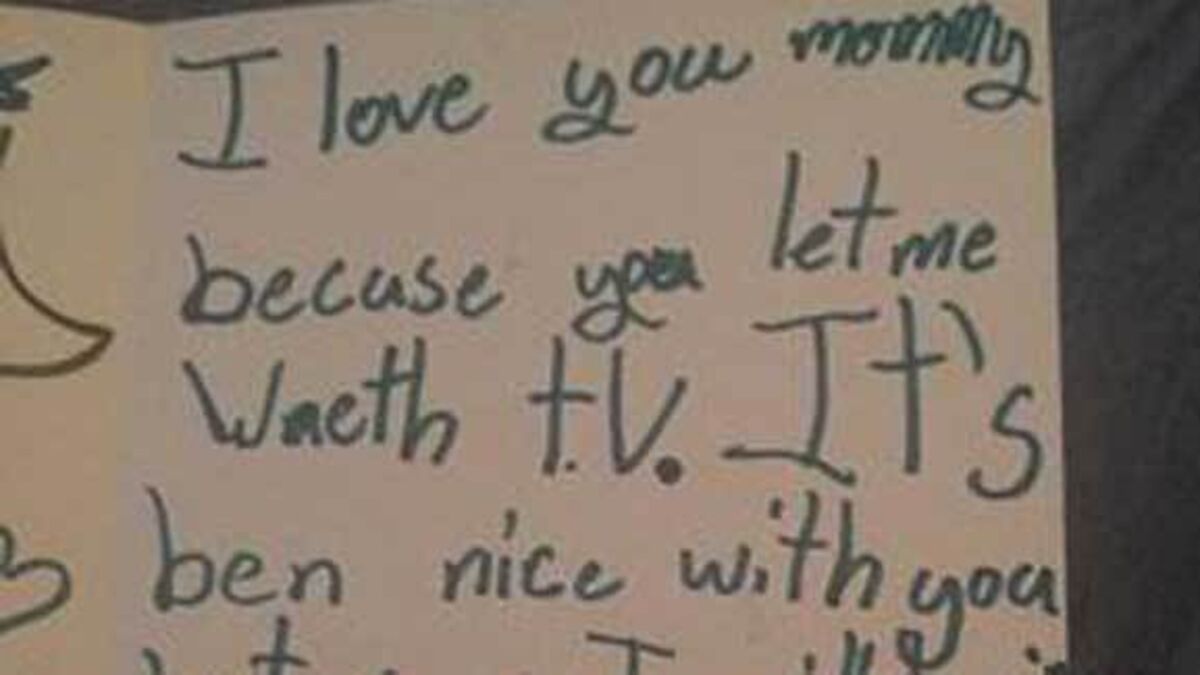 I love you mommy
becuse you let me
Wacth t.V. It's
ben nice with you